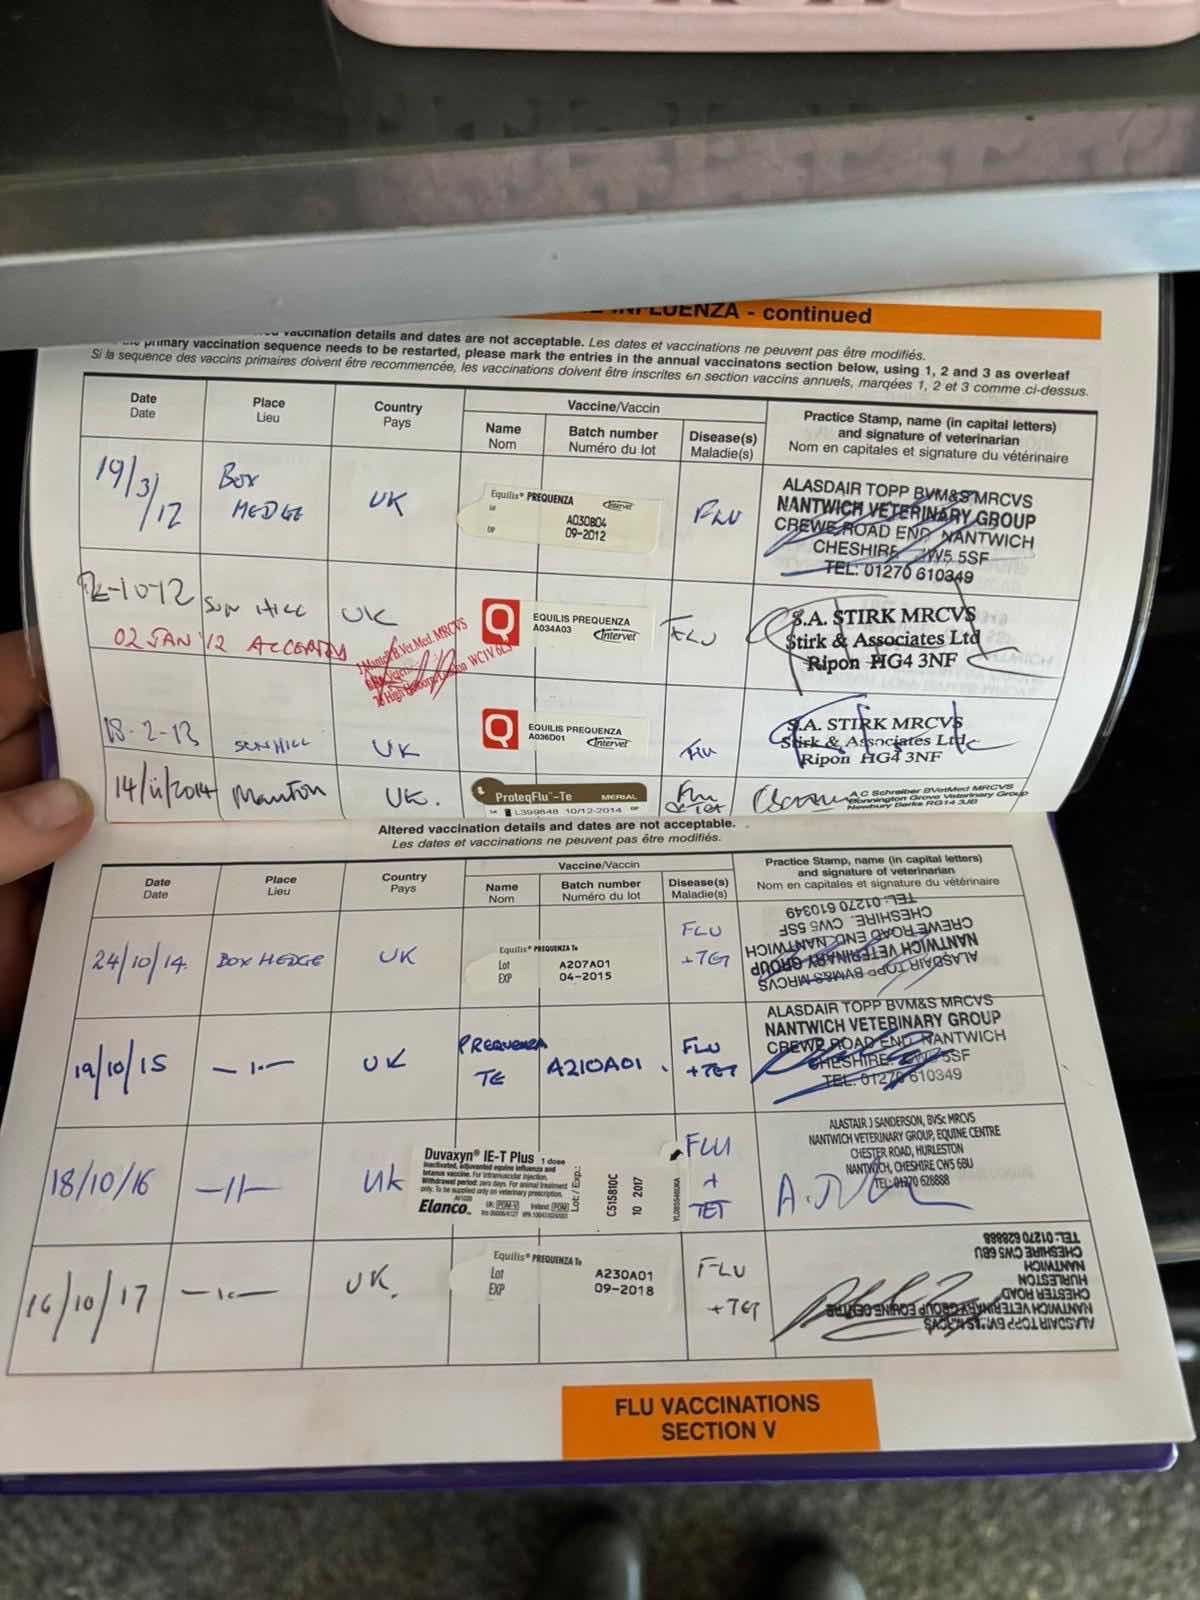 INFLUENZA - continued
vaccination details and dates are not acceptable. Les dates et vaccinations ne peuvent pas être modifiés.
primary vaccination sequence needs to be restarted, please mark the entries in the annual vaccinatons section below, using 1, 2 and 3 as overleaf
Si la sequence des vaccins primaires doivent être recommencée, les vaccinations doivent être inscrites en section vaccins annuels, marqées 1, 2 et 3 comme ci-dessus.
Date Place Country Vaccine/Vaccin Practice Stamp, name (in capital letters)
Date Lieu Pays Name Batch number Disease(s) and signature of veterinarian
Nom Numéro du lot Maladie(s) Nom en capitales et signature du vétérinaire
19/3/12 BOX HEDGE UK
Equilis® PREQUENZA Intervet
A030B04
09-2012
FLU
ALASDAIR TOPP BVM&S MRCVS
NANTWICH VETERINARY GROUP
CREWE ROAD END, NANTWICH
CHESHIRE CW5 5SF
TEL: 01270 610349
2-10-12 SUN HILL UK
02 JAN 12 ACCEPTED
B.Vet.Med. MRCVS
High Holborn, London WC1V
Q EQUILIS PREQUENZA
A034A03 Intervet
FLU
S.A. STIRK MRCVS
Stirk & Associates Ltd
Ripon HG4 3NF
18-2-13 SUNHILL UK
Q EQUILIS PREQUENZA
A036D01 Intervet
Flu
S.A. STIRK MRCVS
Stirk & Associates Ltd
Ripon HG4 3NF
14/ii/2014 Manton UK.
ProteqFlu™-Te MERIAL
L399648 10/12-2014
Flu & Tet
A C Schreiber BVetMed MRCVS
Donnington Grove Veterinary Group
Newbury Berks RG14 3JB
Altered vaccination details and dates are not acceptable.
Les dates et vaccinations ne peuvent pas être modifiés.
Date Place Country Vaccine/Vaccin Practice Stamp, name (in capital letters)
Date Lieu Pays Name Batch number Disease(s) and signature of veterinarian
Nom Numéro du lot Maladie(s) Nom en capitales et signature du vétérinaire
24/10/14. BOX HEDGE UK
Equilis® PREQUENZA Te
Lot A207A01
EXP 04-2015
FLU + TET
ALASDAIR TOPP BVM&S MRCVS
NANTWICH VETERINARY GROUP
CREWE ROAD END, NANTWICH
CHESHIRE. CW5 5SF
TEL: 01270 610349
19/10/15 —1·— UK
PREQUENZA TE A210A01 .
FLU + TET
ALASDAIR TOPP BVM&S MRCVS
NANTWICH VETERINARY GROUP
CREWE ROAD END, NANTWICH
CHESHIRE. CW5 5SF
TEL: 01270 610349
18/10/16 —11— UK
Duvaxyn® IE-T Plus 1 dose
Inactivated, adjuvanted equine influenza and
tetanus vaccine. For intramuscular injection.
Withdrawal period: zero days. For animal treatment
only. To be supplied only on veterinary prescription.
Elanco™
Lot / Exp.:
C515810C
10 2017
FLU + TET
ALASTAIR J SANDERSON, BVSc MRCVS
NANTWICH VETERINARY GROUP, EQUINE CENTRE
CHESTER ROAD, HURLESTON
NANTWICH, CHESHIRE CW5 6BU
TEL: 01270 628888
16/10/17 UK.
Equilis® PREQUENZA Te
Lot A230A01
EXP 09-2018
FLU + TET
ALASDAIR TOPP BVM&S MRCVS
NANTWICH VETERINARY GROUP EQUINE CENTRE
CHESTER ROAD
HURLESTON
NANTWICH
CHESHIRE CW5 6BU
TEL: 01270 628888
FLU VACCINATIONS
SECTION V